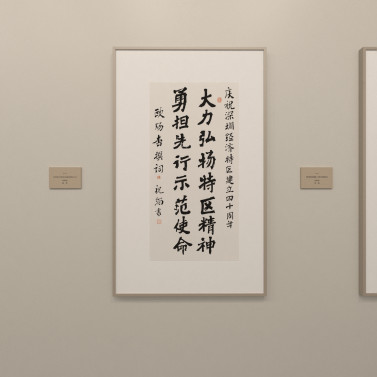 庆祝深圳经济特区建立四十周年
大力弘扬特区精神
勇担先行示范使命
欧阳 撰词 祝 书